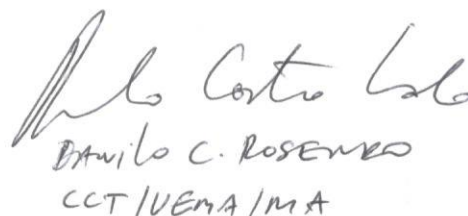 Costa
DANILO C. ROSENDO
CCT/UEMA/MA